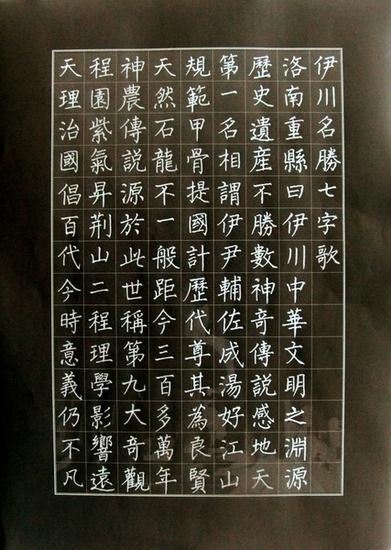 伊川名勝七字歌
洛南重縣曰伊川中華文明之淵源
歷史遺産不勝數神奇傳説感地天
第一名相謂伊尹輔佐成湯好江山
規範甲骨提國計歷代尊其為良賢
天然石龍不一般距今三百多萬年
神農傳説源於此世稱第九大奇觀
程園紫氣昇荆山二程理學影響遠
天理治國倡百代今時意義仍不凡